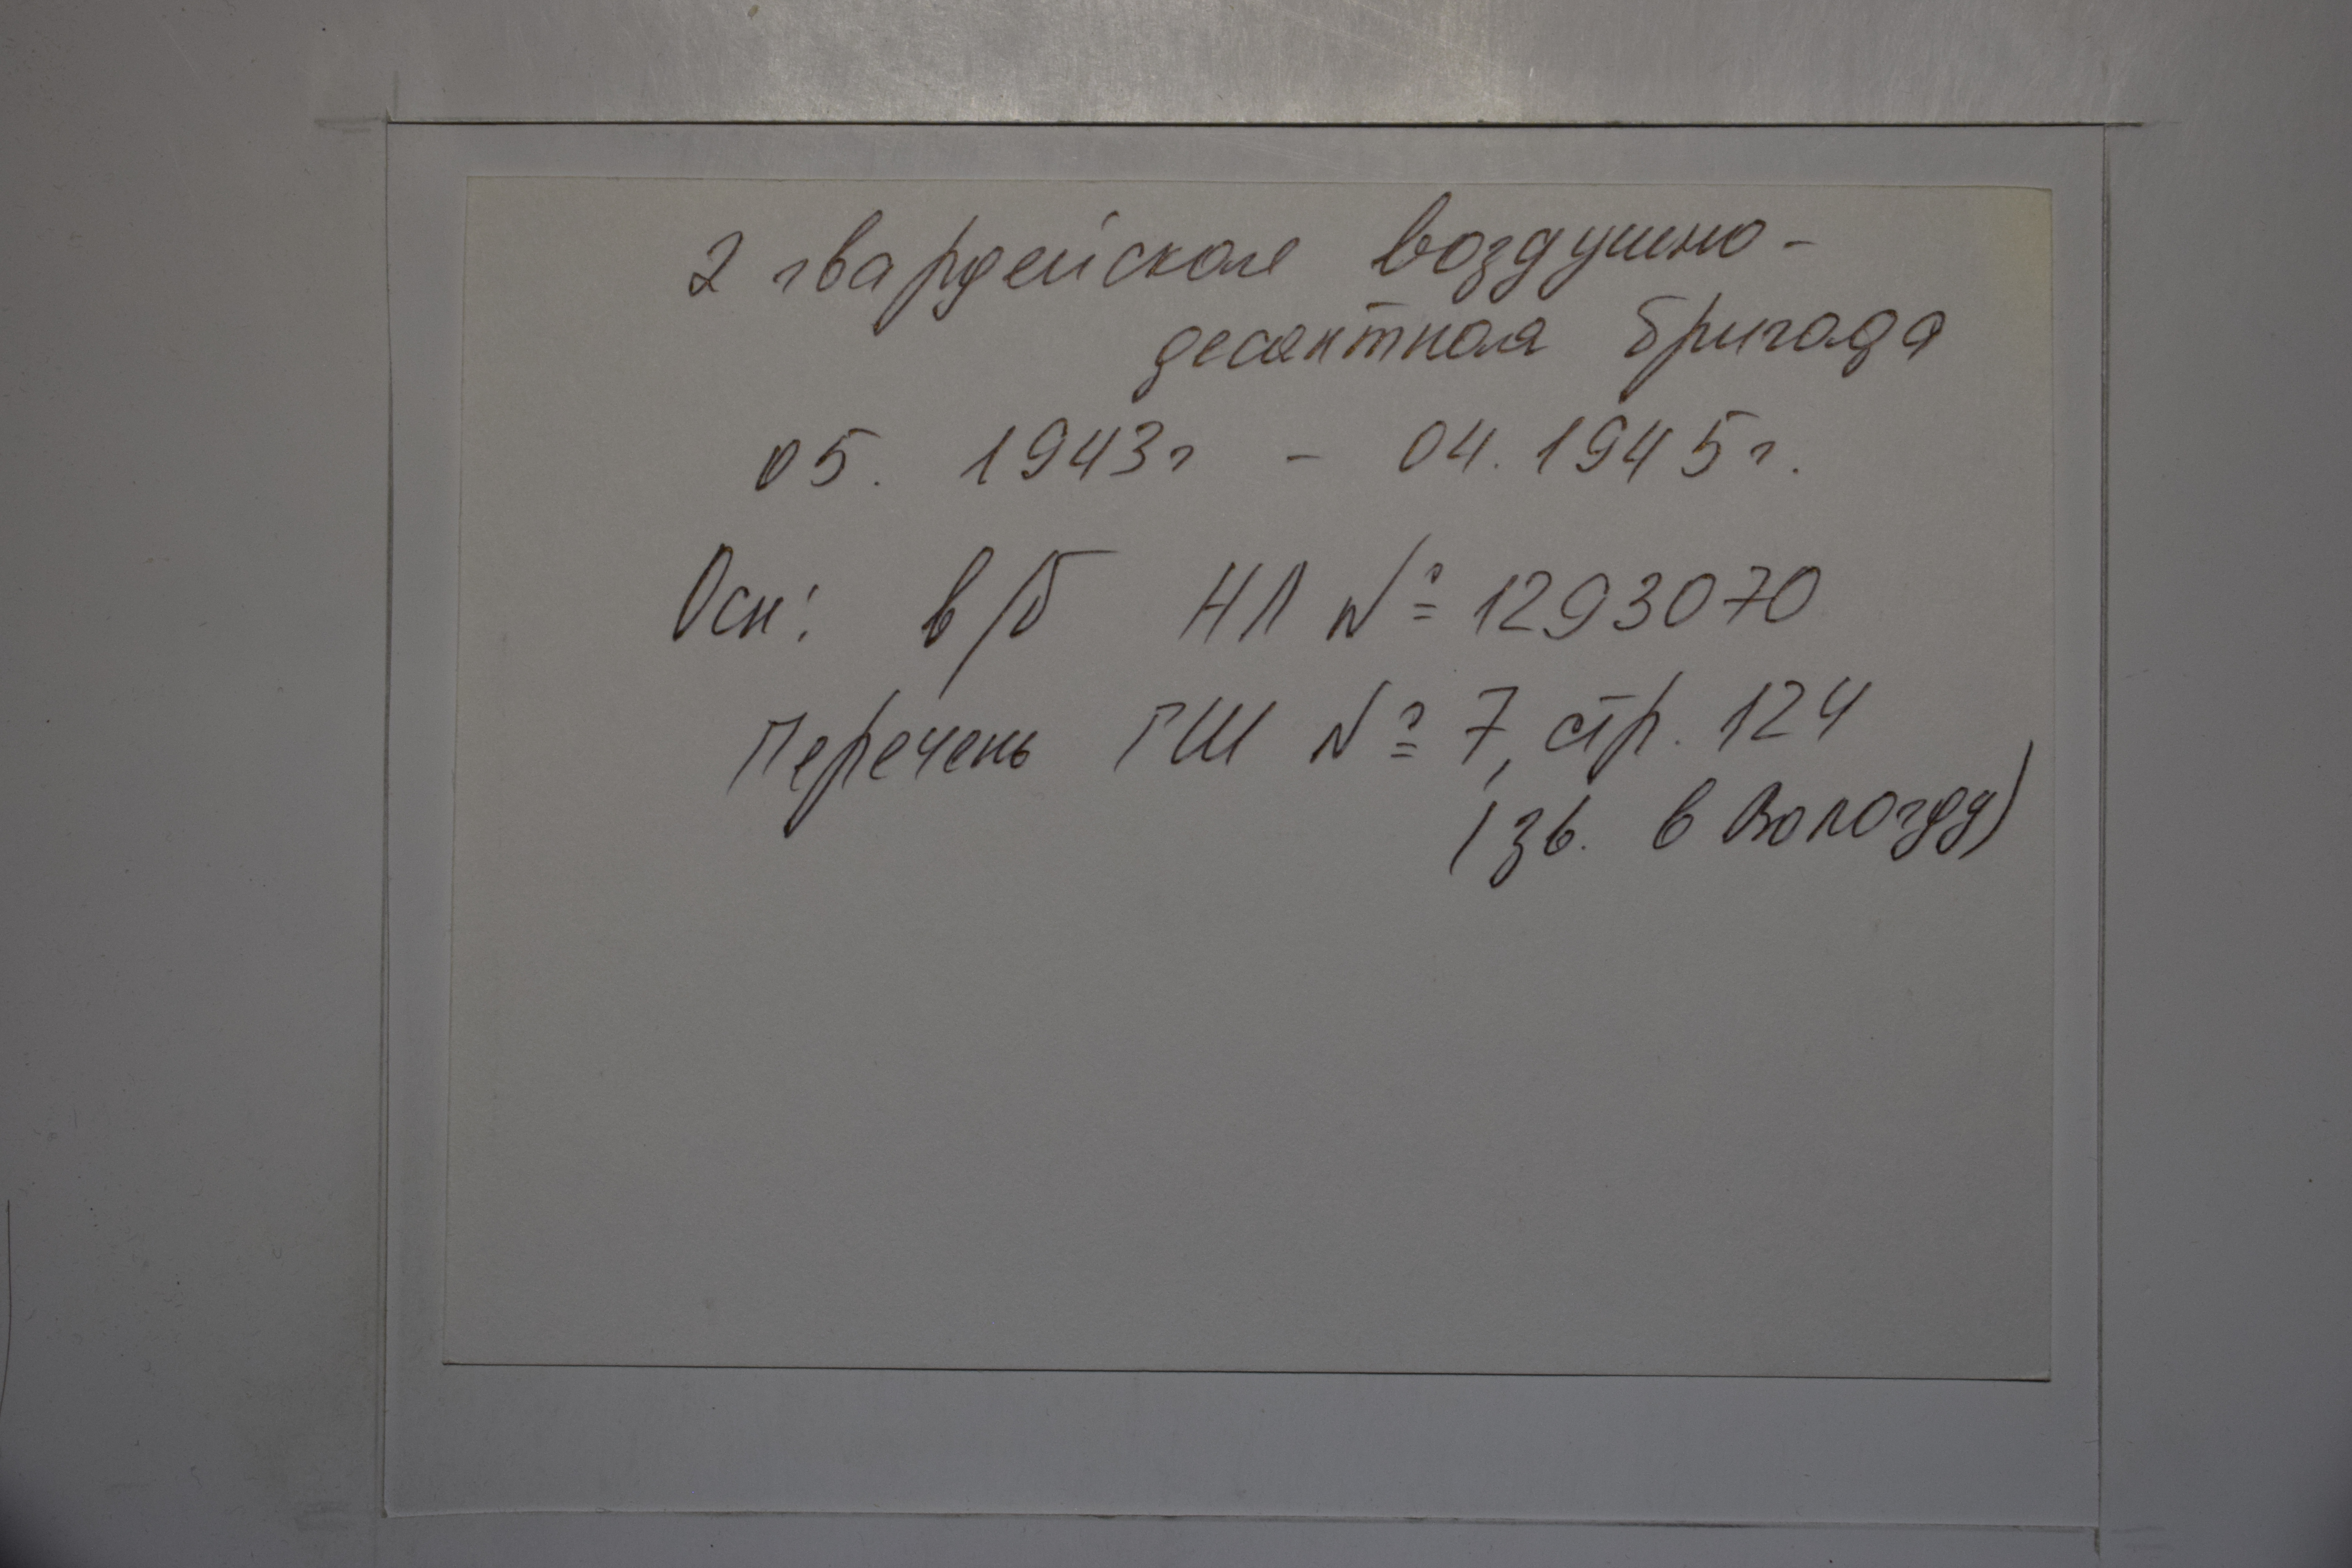 2 гвардейская воздушно-
десантная бригада
05. 1943г - 04. 1945г.
Осн: в/б НЛ № 1293070
Перечень ГШ № 7, стр. 124
(зв. в Вологду)